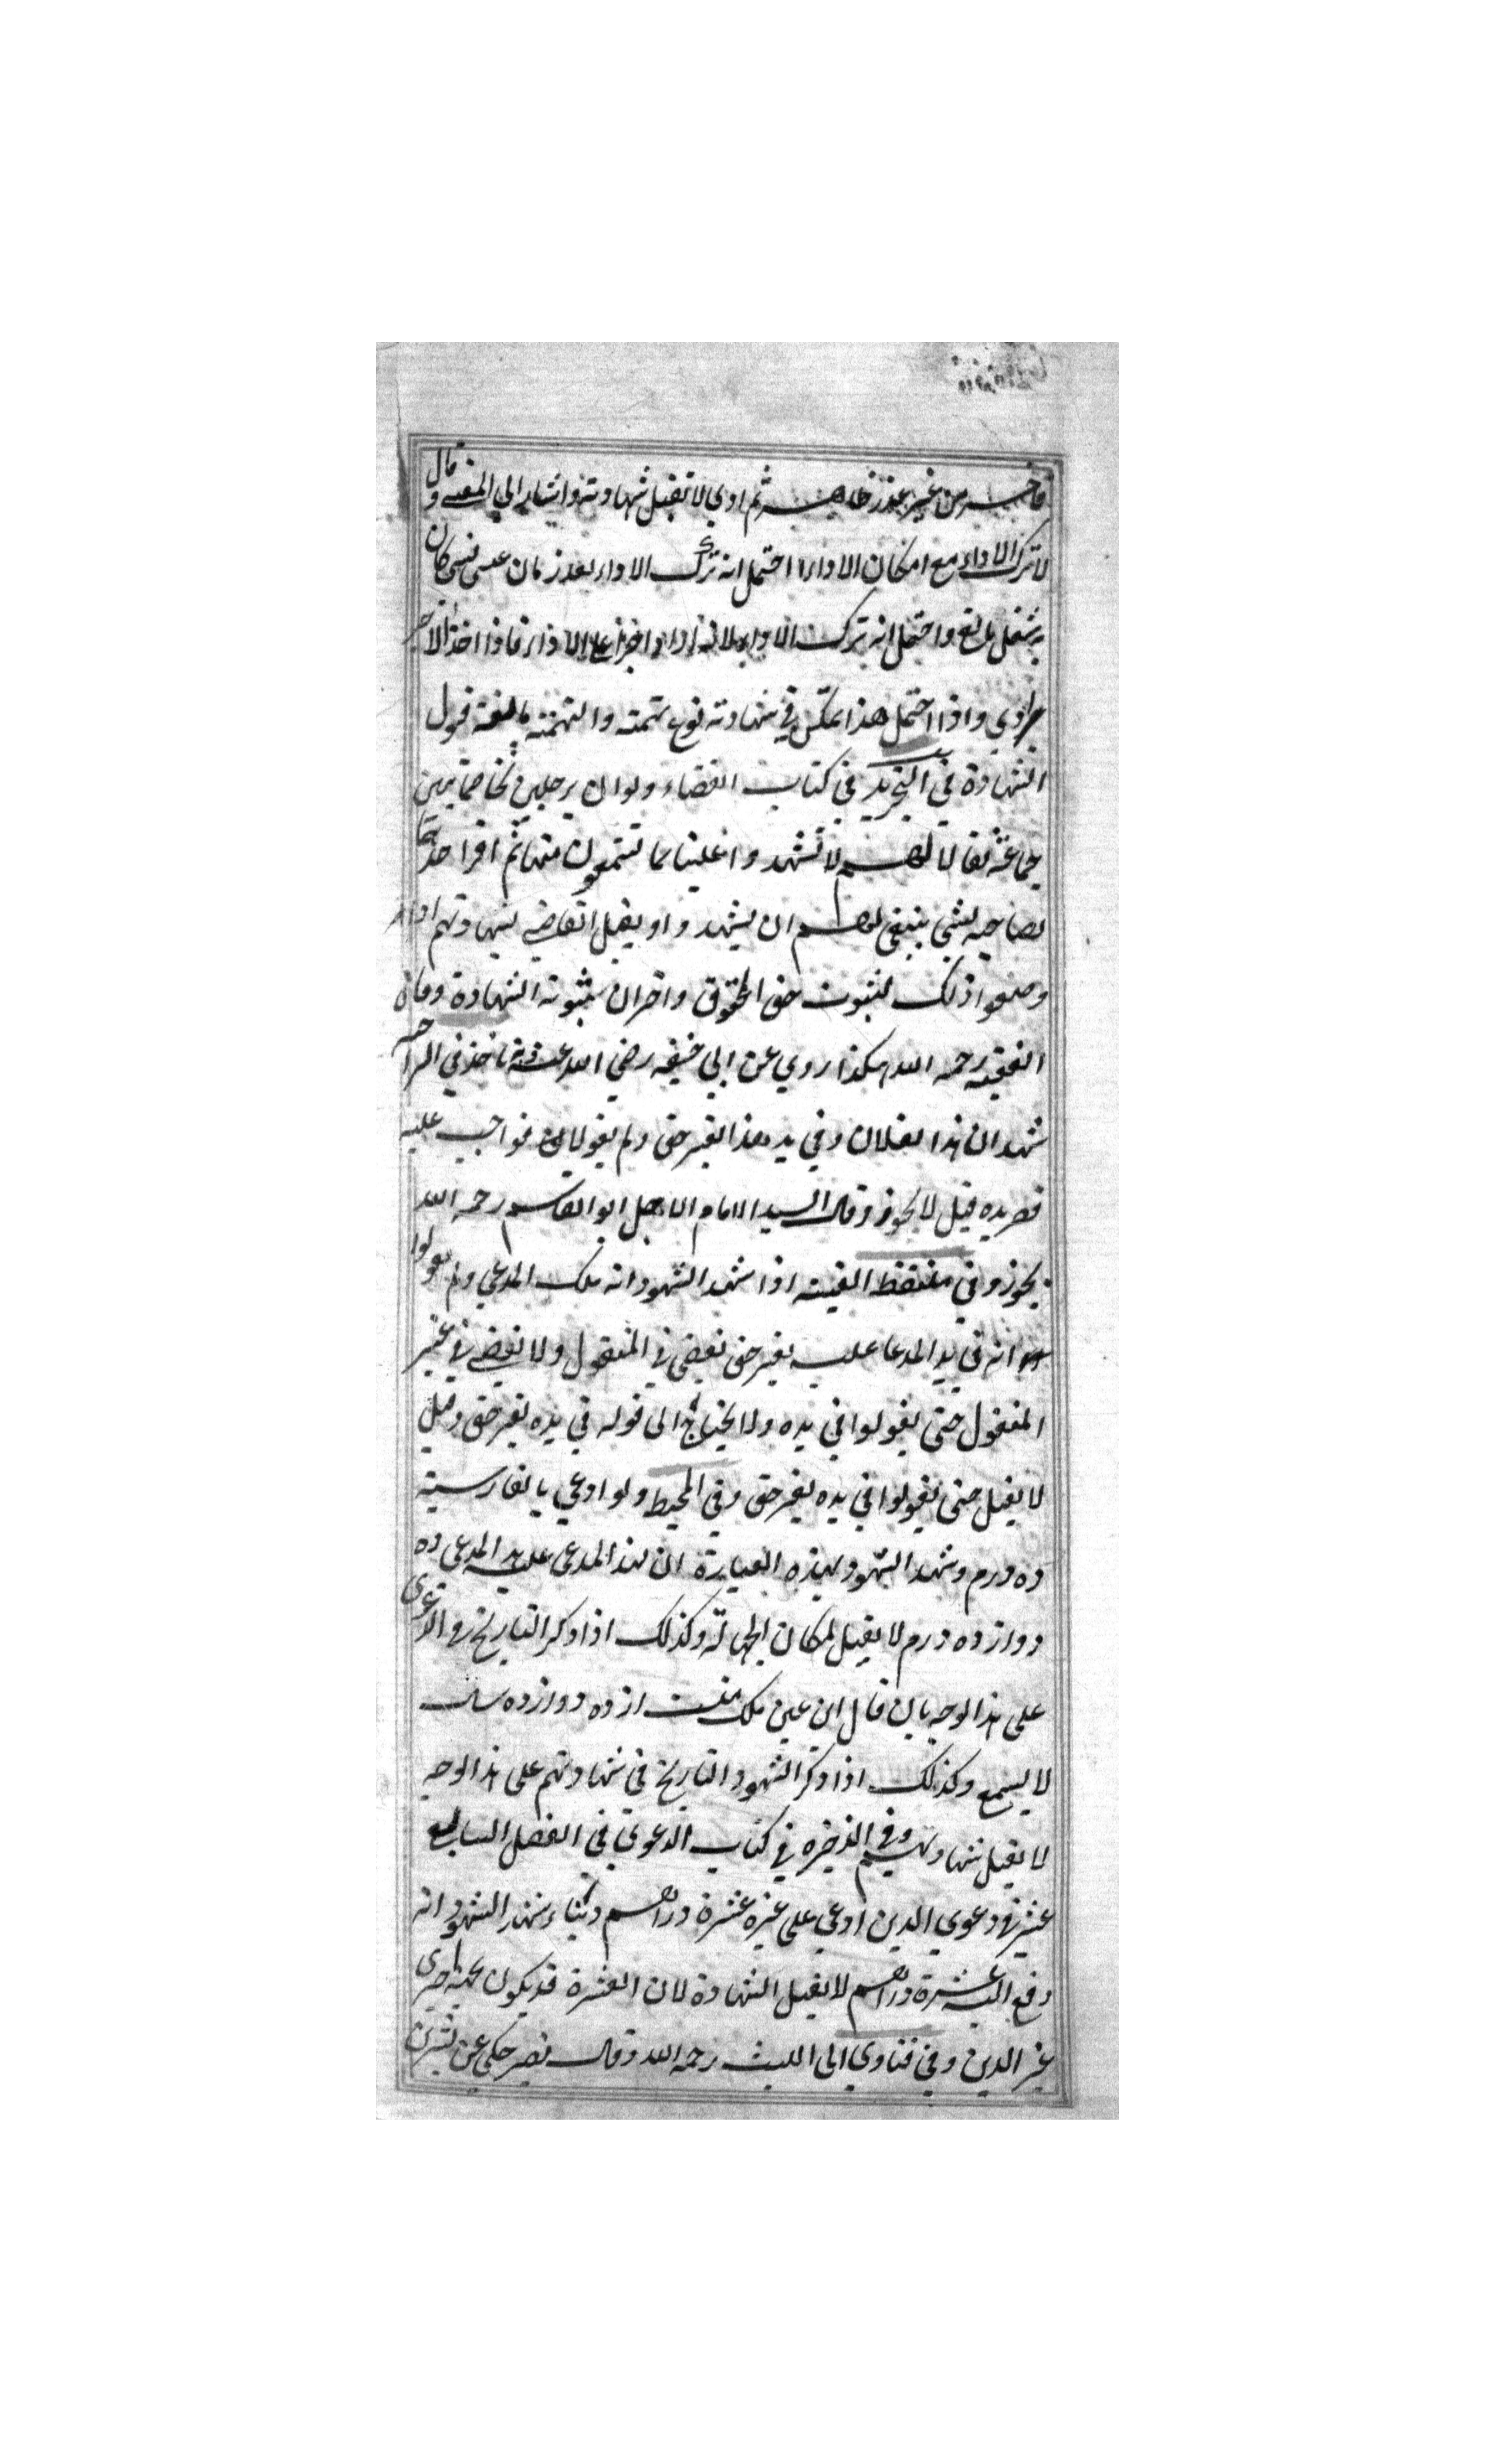 فاخر من غير عذر ظاهر ثم ادى لا تقبل شهادته واشار الى المعنى وقال
لا ترك الاداء مع امكان الاداء احتمل انه ترك الاداء بعذر بان عسى نسى كان
به شغل مانع واحتمل انه ترك الاداء لانه اراد اخذ على الاداء فاذا اخذ الاجر
ادى واذا احتمل هذا تمكن في شهادته نوع تهمة والتهمة مانعة قبول
الشهادة في التجريد في كتاب القضاء ولو ان رجلين تخاصما بين
جماعة فقالا لهم لا تشهدوا علينا بما تستمعون منهاثم اقر احدهما
لصاحبه بشى ينبغى لهم ان يشهدوا ويقبل القاضى شهادتهم اذا
وصفوا ذلك لثبوت حق الحقوق واقران بثبوته الشهادة وقال
الفقيه رحمه الله هكذا روي عن ابي حنيفه رضي الله عنه وبه ناخذ في
شهد ان هذا لفلان وفي يد هذا بغير حق ولم يقولا فواجب عليه
قصر يده قيل لا يجوز وقال السيد الامام الاجل ابو القاسم رحمه الله
يجوز وفي ملتقط الفيته اذا شهد الشهود انه ملك المدعي ولم يقولوا
انه في يد المدعا عليه بغير حق يقضى في المنقول ولا يقضى في غير
المنقول حتى يقولوا في يده ولا يحتاج الى قوله في يده بغير حق وقيل
لا يقبل حتى يقولوا في يده بغير حق وفي المحيط ولو ادعي بالفارسية
ده درم وشهد الشهود بهذه العبارة ان لهذا المدعى على يد المدعى ده
دوازده درم لا يقبل لمكان الجهالة وكذلك اذا ذكر التاريخ في الدعوى
على هذا الوجه بان قال اين عين ملك منست از ده دوازده سال
لا يسمع وكذلك اذا ذكر الشهود التاريخ في شهادتهم على هذا الوجه
لا يقبل شهادتهم وفي الذخيره في كتاب الدعوى في الفصل السابع
عشر في دعوى الدين ادعي على غيره عشرة دراهم شهد الشهود انه
دفع اليه عشرة دراهم لا يقبل الشهادة لان العشرة قد يكون
غير الدين وفي فتاوي ابى الليث رحمه الله وقال نصر حكى عن بشر بن